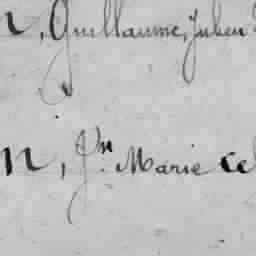 n, Guillaume, Julien
n, Jn Marie Cel